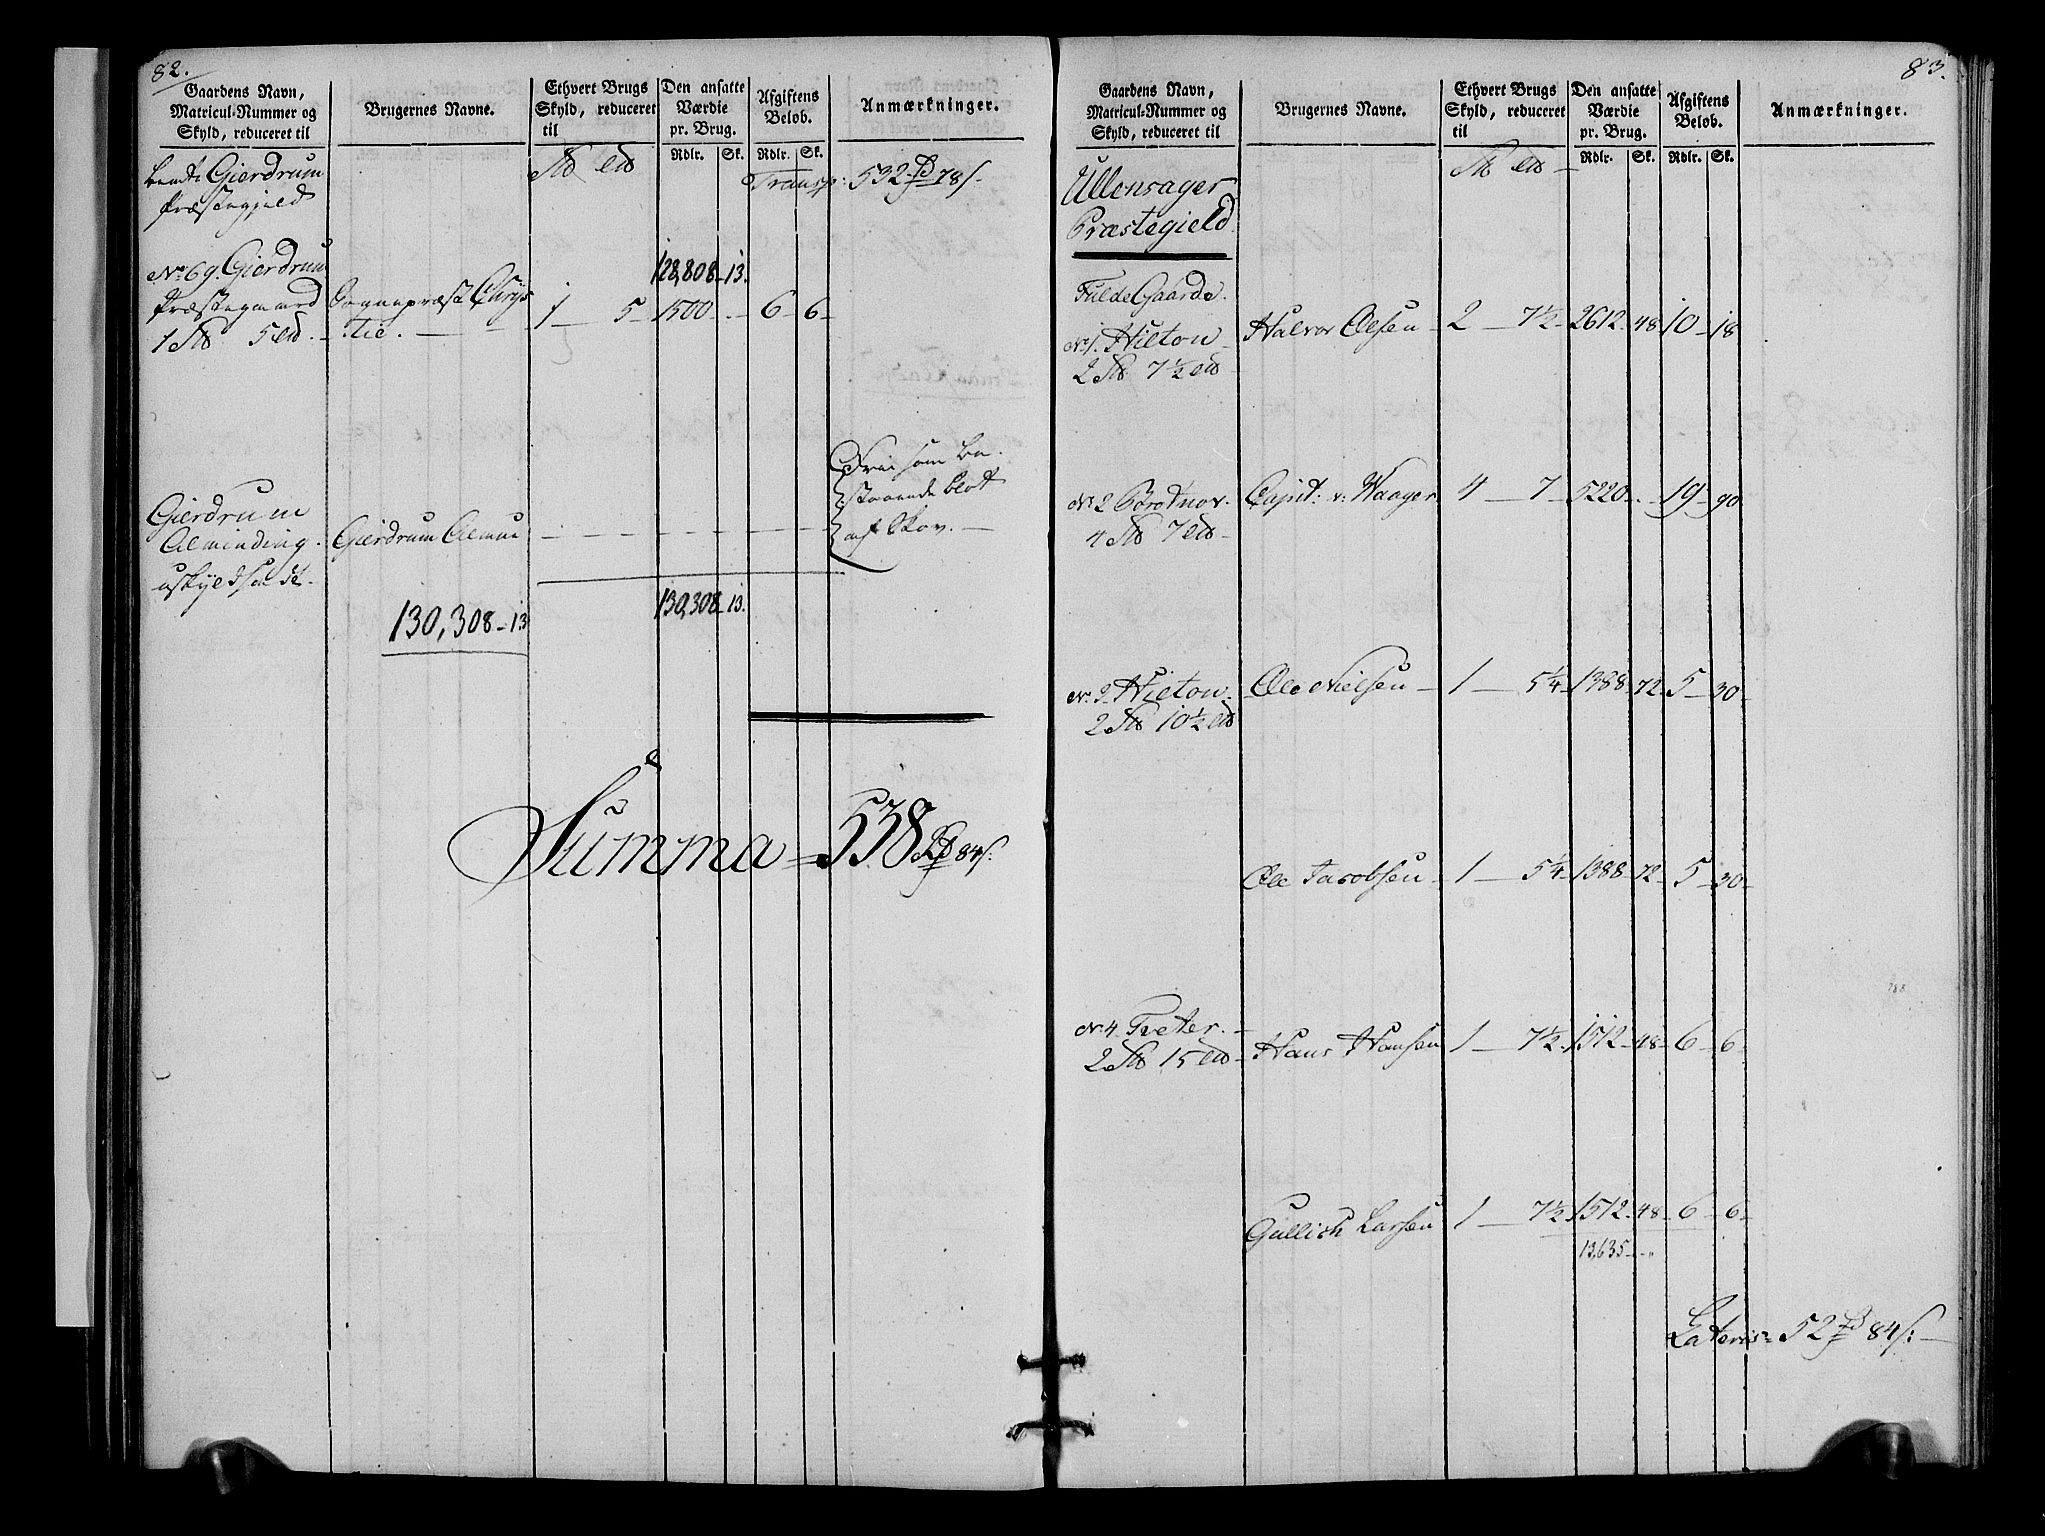 82.
Gaardens Navn, Matricul-Nummer og Skyld, reduceret til
Brugernes Navne.
Ethvert Brugs Skyld, reduceret til
Den ansatte Værdie pr. Brug.
Rdlr. Sk.
Afgiftens Beløb.
Rdlr. Sk.
Anmærkninger.
Gierdrum
Præstegield
Transp: 532 78 s.
128,808 - 13.
No 69. Gierdrum
Præstegaard Sognepræst Chrys
1 5 - tie. 1 5 1500 - 6 - 6 -
Frie som be-
staaende blot
af Skov.
Gierdrum
Alminding. Gierdrum Almue
uskyldsat.
130,308 - 13.
130,308 - 13
Summa = 538 84 s:
83.
Gaardens Navn, Matricul-Nummer og Skyld, reduceret til
Brugernes Navne.
Ethvert Brugs Skyld, reduceret til
Den ansatte Værdie pr. Brug.
Rdlr. Sk.
Afgiftens Beløb.
Rdlr. Sk.
Anmærkninger.
Ullensager
Præstegield
Fulde Gaarde.
No 1. Hilton Halvor Olsen 2 7½ 2612 48 10 18
2 7½
No 2 Capit: v. Waager 4 7 5220 - 19 90
4 7
No 3 Hilton Ole Nielsen 1 5¼ 1388 72 5 30
2 10½
Ole Jacobsen 1 5¼ 1388 72 5 30
No 4. Tveter Hans Hansen 1 7½ 1512 48 6 6
2 15
Gullich Larsen 1 7½ 1512 48 6 6
13,635
Lateris = 52 84 s: